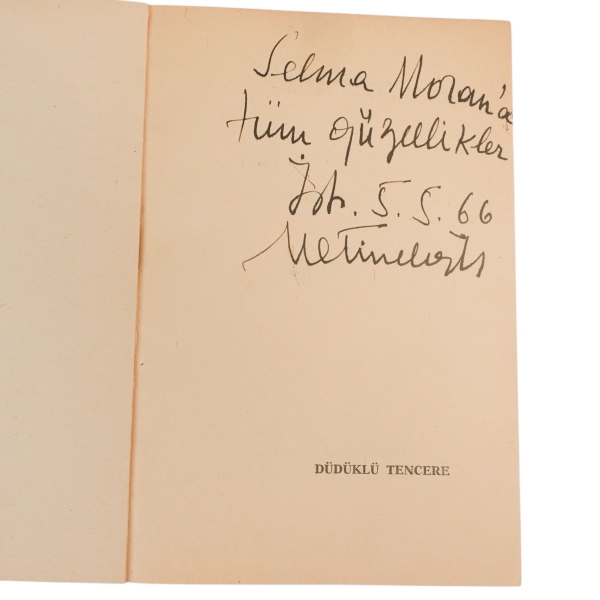 Selma Moran'a
tüm güzellikler
İst. 5.5.66
Metin Eloğlu
DÜDÜKLÜ TENCERE